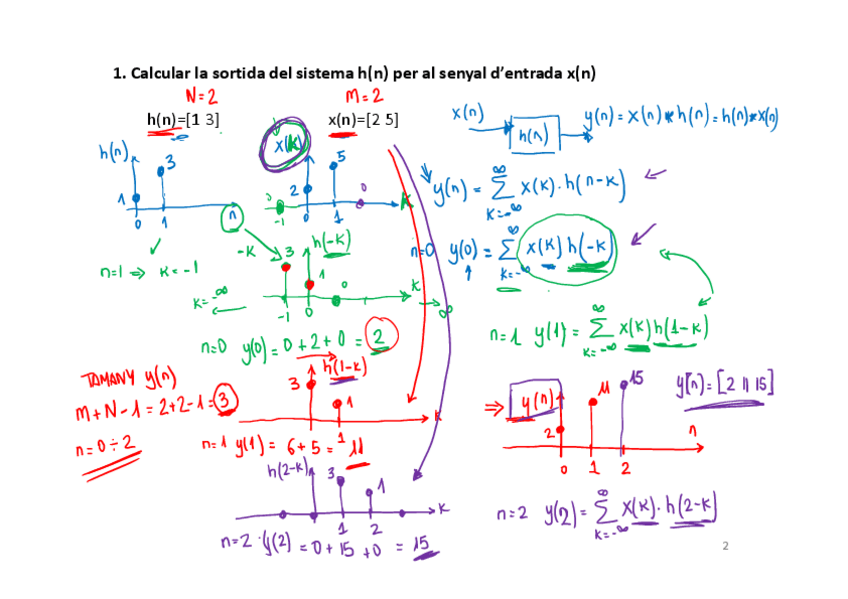 1. Calcular la sortida del sistema h(n) per al senyal d'entrada x(n)
N=2
M=2
h(n)=[1 3]
x(n)=[2 5]
x(n)
h(n)
y(n) = x(n) * h(n) = h(n) * x(n)
h(n)
3
1
0 1
n
x(k)
5
2
0
0
-1 0 1
k
y(n) = ∞ Σ k=-∞ x(k)·h(n-k)
n=0 y(0) = ∞ Σ k=-∞ x(k) h(-k)
n=1 ⇒ k=-1
-k
3
h(-k)
1
k
k=-∞
-1 0
∞
n=0 y(0) = 0+2+0 = 2
n=1 y(1) = ∞ Σ k=-∞ x(k) h(1-k)
TAMANY y(n)
M+N-1 = 2+2-1 = 3
n=0÷2
h(1-k)
3
1
k
1
n=1 y(1) = 6+5 = 11
⇒ y(n)
2
11
15
n
0 1 2
y[n] = [2 11 15]
h(2-k)
3
1
k
1 2
n=2 y(2) = 0+15+0 = 15
n=2 y(2) = ∞ Σ k=-∞ x(k)·h(2-k)
2